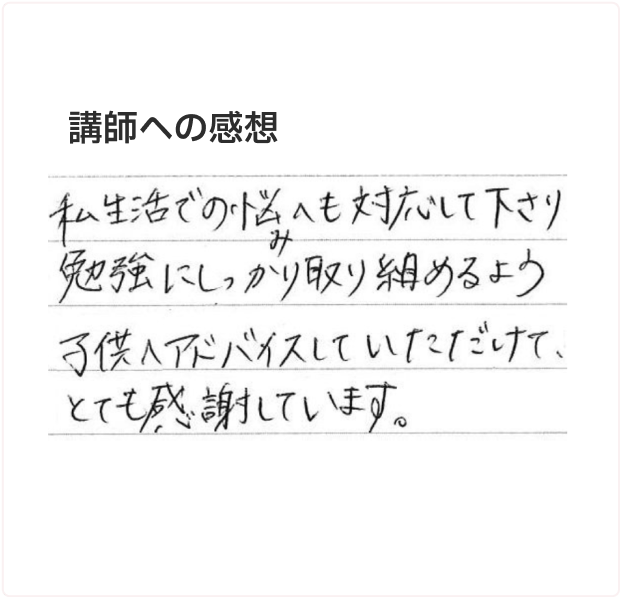 講師への感想
私生活での悩みへも対応して下さり
勉強にしっかり取り組めるよう
子供へアドバイスしていただけて、
とても感謝しています。